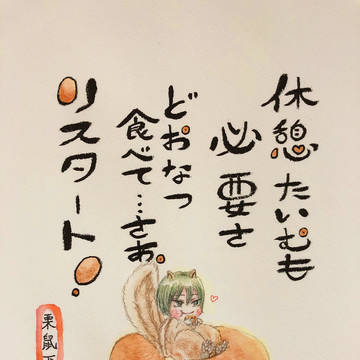 休憩たいむも
必要さ
どおなつ
食べて…さあ
リスタート!
栗鼠